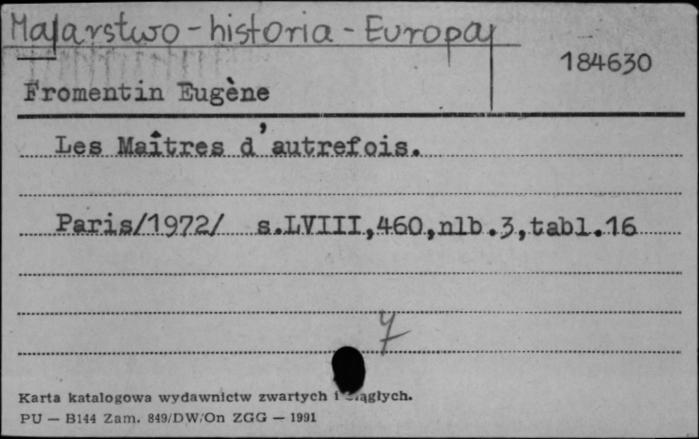 Malarstwo - historia - Europa
184630
Fromentin Eugène
Les Maîtres d'autrefois.
Paris/1972/ s.LVIII,460,nlb.3,tabl.16
7
Karta katalogowa wydawnictw zwartych i
PU — B144 Zam. 849/DW/On ZGG — 1991